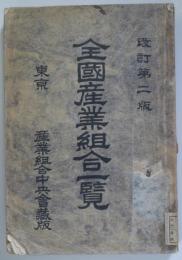 改訂第二版
全國産業組合一覽
東京 産業組合中央會藏版